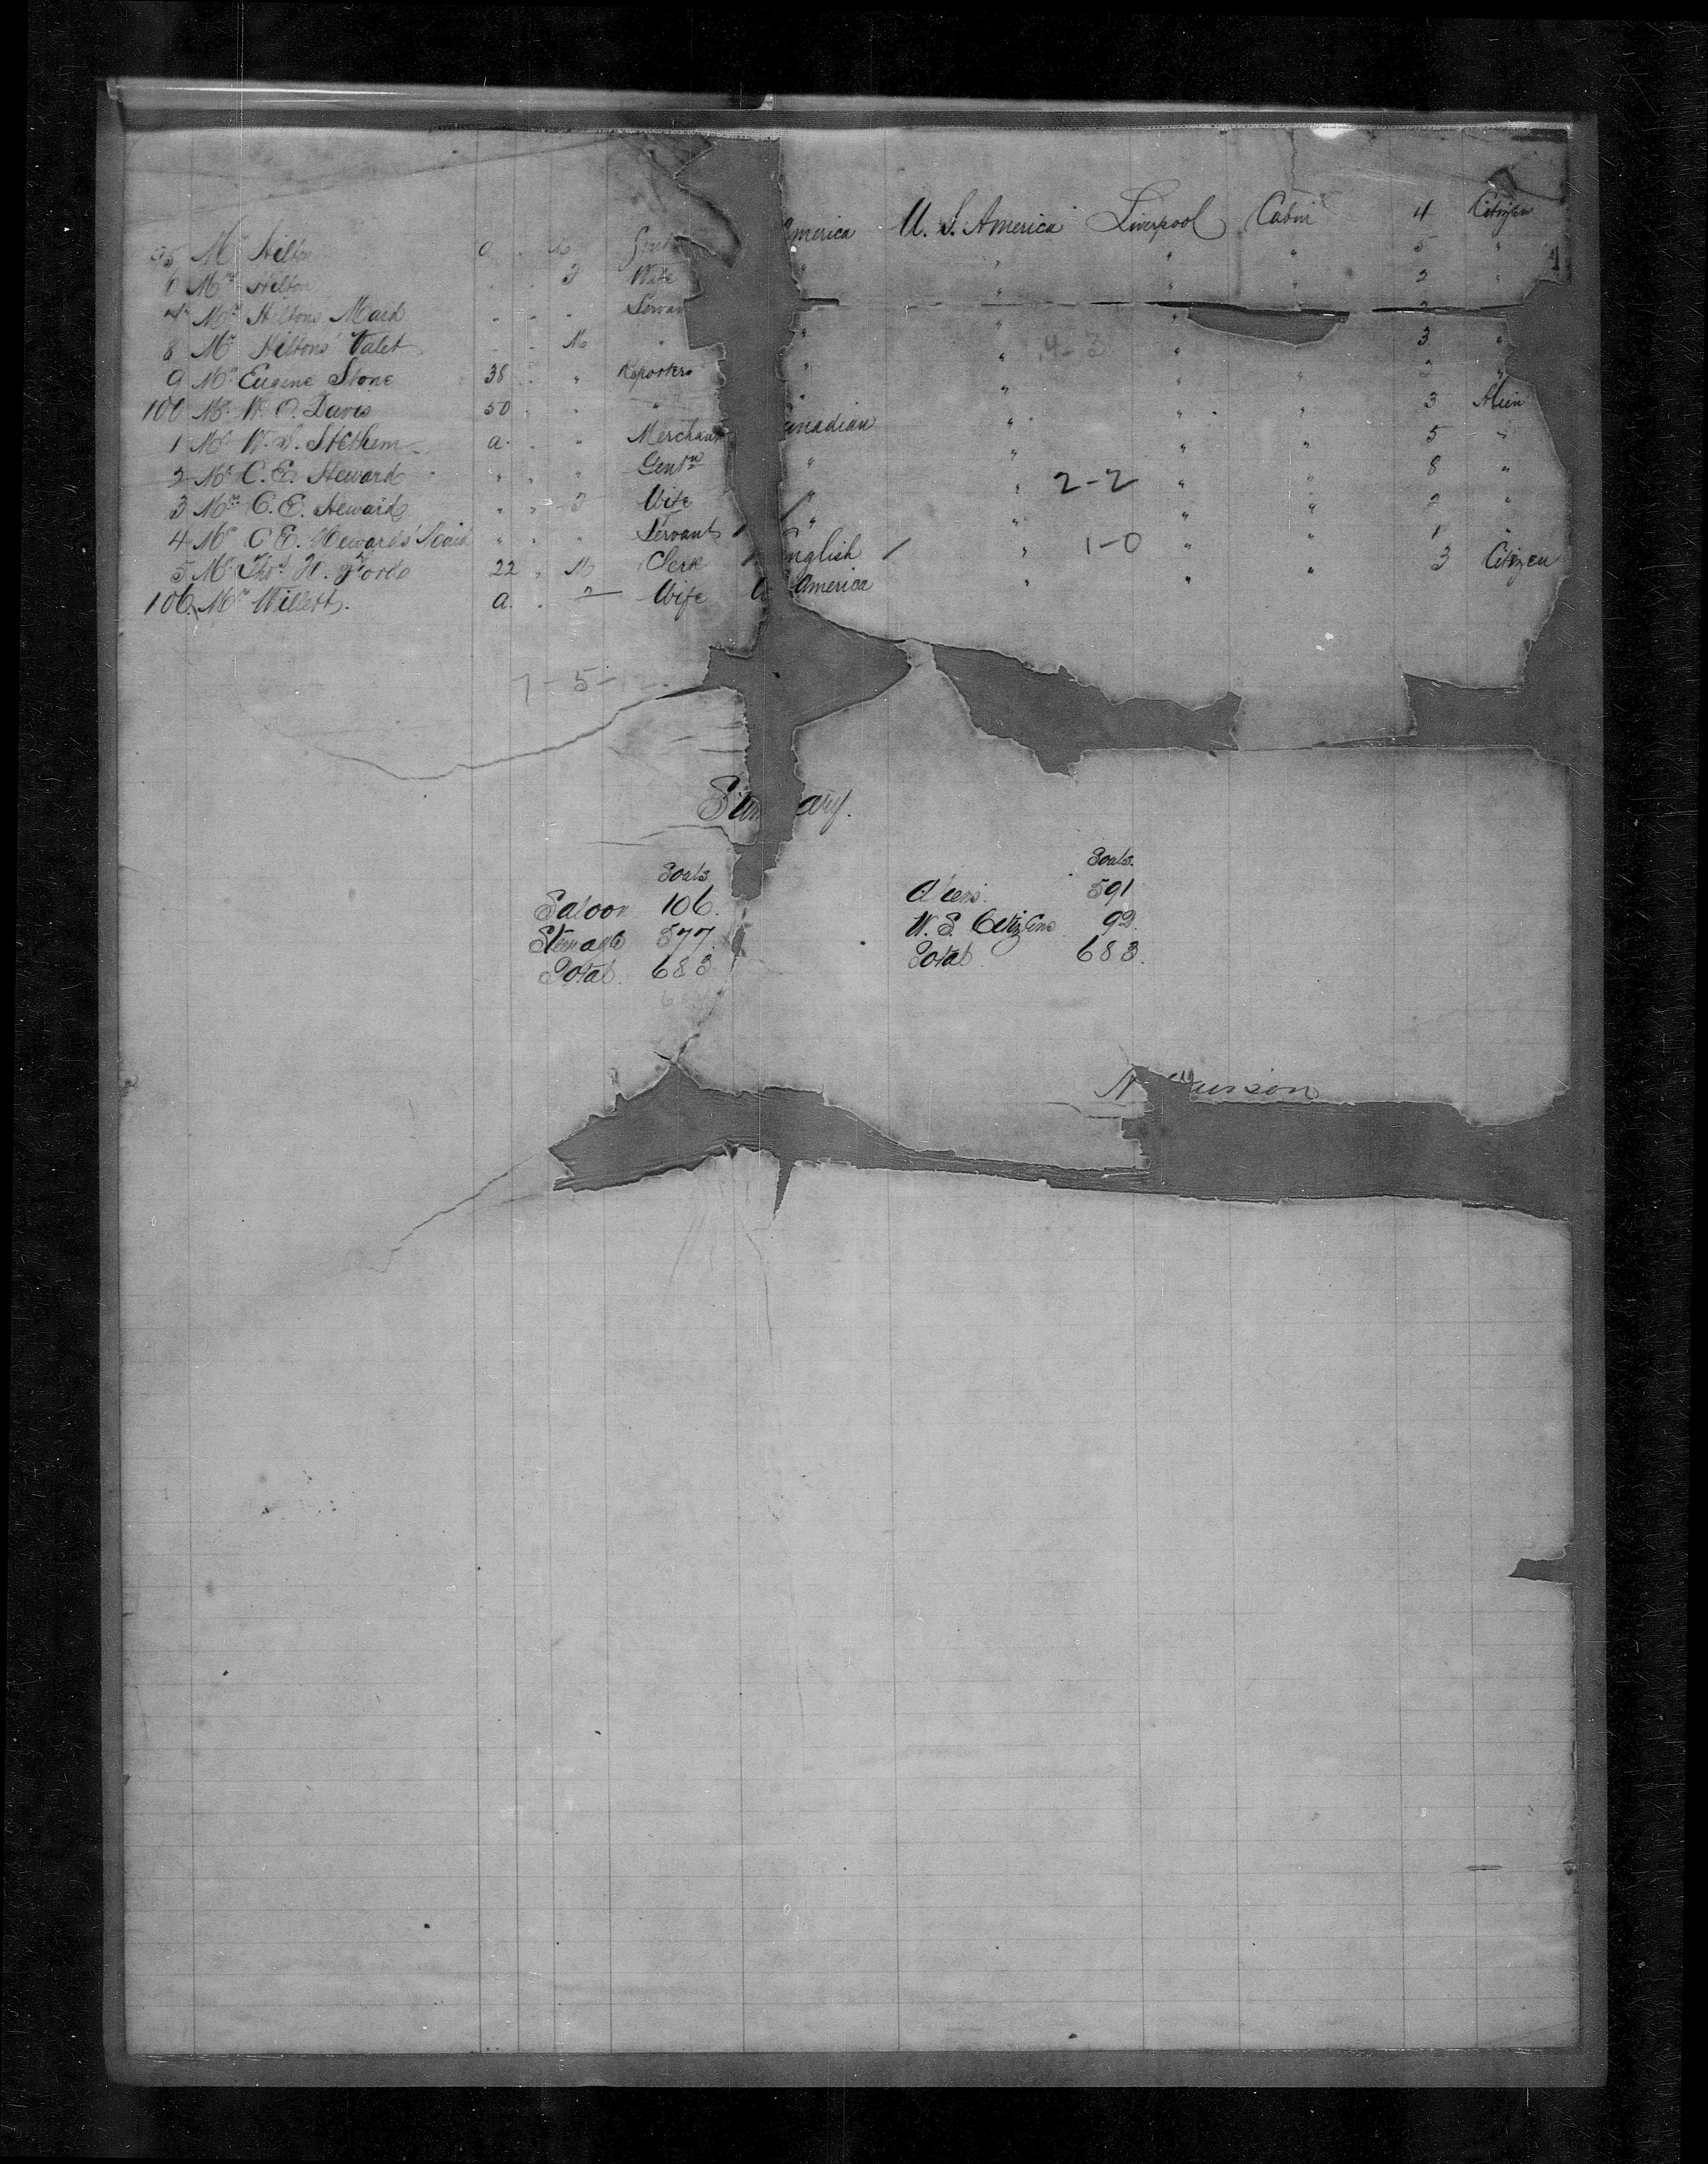 95 Mr Hilton a " M Gent America U. S. America Liverpool Cabin 4 Citizen
6 Mrs Hilton " " F Wife " " " " 5 "
7 Mrs Hiltons Maid " " " Servan " " " " 2 "
8 Mr Hiltons Valet " " M " " " "
9 Mr Eugene Stone 38 " " Reporter " " " 3 "
100 Mr W. O. Davis 50 " " " " " " "
1 Mr W. S. Stethem a " " Merchant anadian " " " 3 Alien
2 Mr C. E. Heward " " " Gentn " " " " 5 "
3 Mrs C. E. Heward " " F Wife " " " " 8 "
4 Mrs C. E. Hewards Maid " " " Servant " " " " 2 "
5 Mr Thos H. Forde 22 " M Clerk nglish " " " 1 "
106 Mrs Willett. a. " F Wife America " " " 3 Citizen
4-3
2-2
1-0
7-5-12
Sum ary.
Souls
Saloon 106.
Steerage 577.
Total. 683
Souls.
Aliens. 591
U. S. Citizens 92.
Total 683.